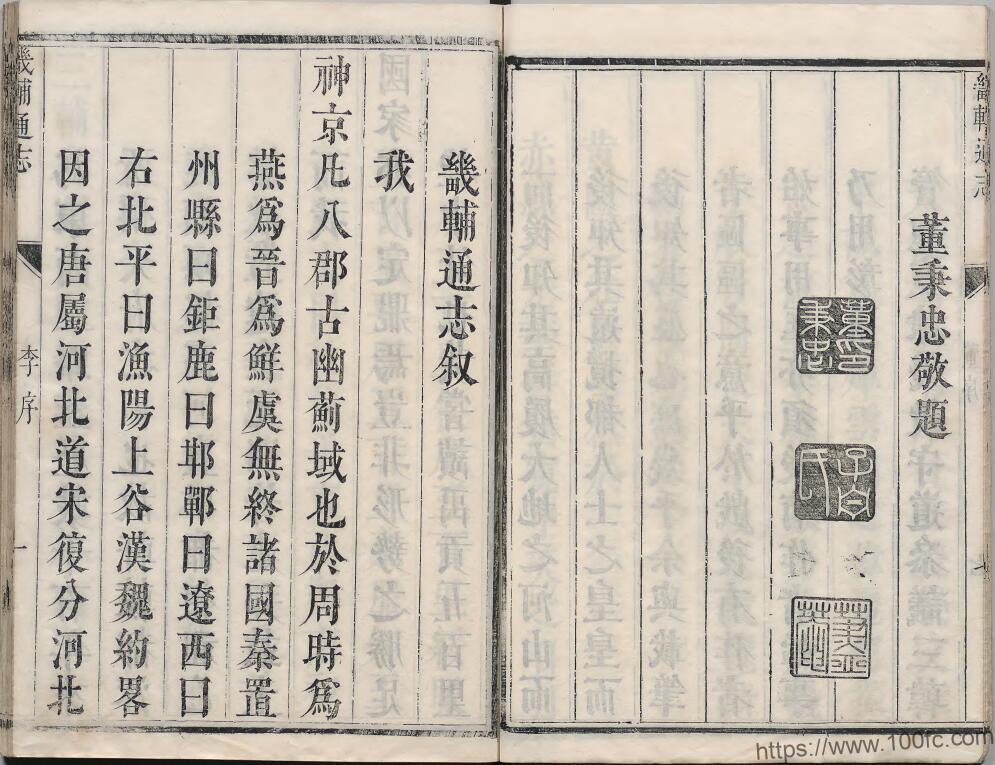 畿輔通志
董秉忠敬題
董印秉忠
畿輔通志叙
我
神京凡八郡古幽薊域也於周時爲
燕爲晉爲鮮虞無終諸國秦置
州縣曰鉅鹿曰邯鄲曰遼西曰
右北平曰漁陽上谷漢魏約畧
因之唐屬河北道宋復分河北
畿輔通志
李序
一
https://www.100fc.com